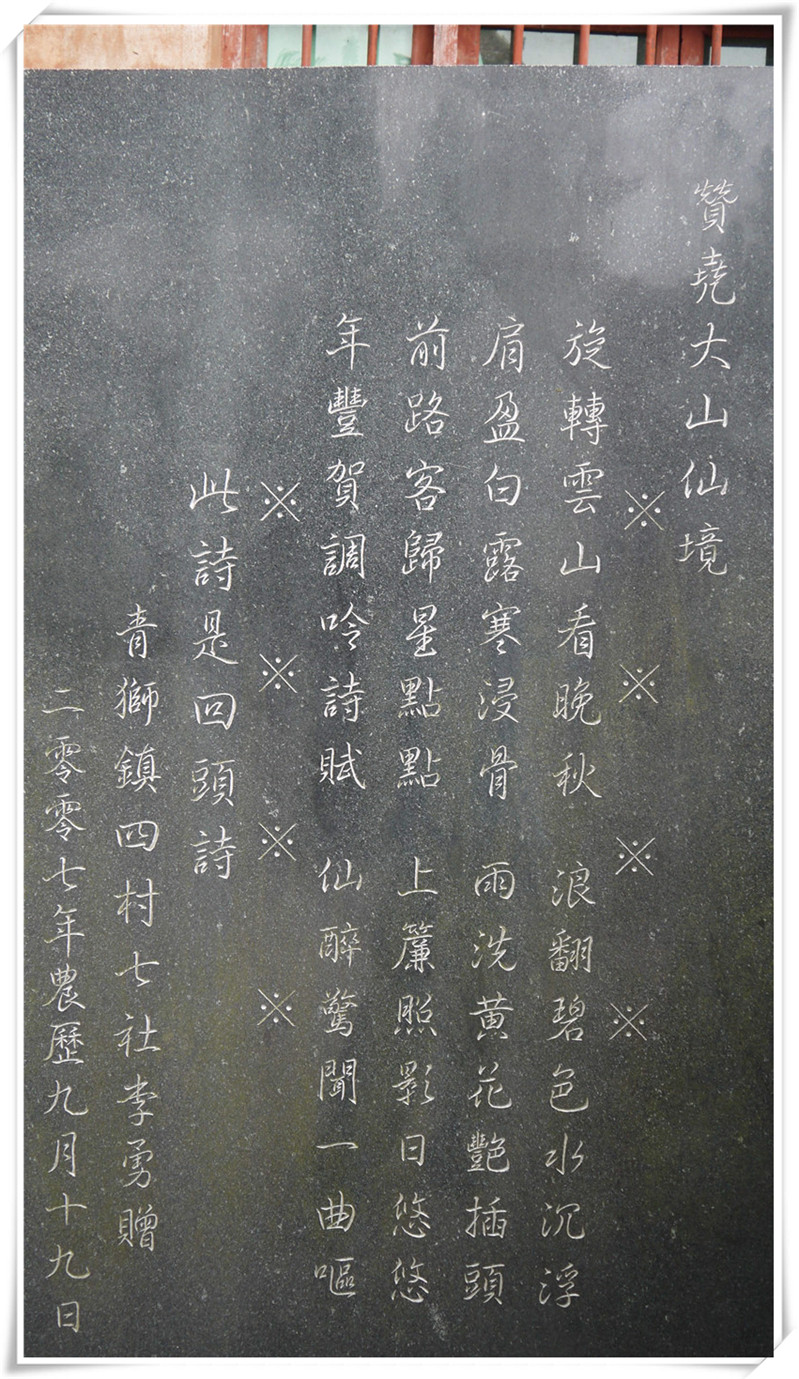 贊堯大山仙境
※ ※ ※ ※
旋轉雲山看晚秋 浪翻碧色水沉浮
肩盈白露寒浸骨 雨洗黄花艷插頭
前路客歸星點點 上簾照影日悠悠
年豐賀調吟詩賦 仙醉驚聞一曲嘔
※ ※ ※ ※
此詩是回頭詩
青獅鎮四村七社李勇贈
二零零七年農歷九月十九日